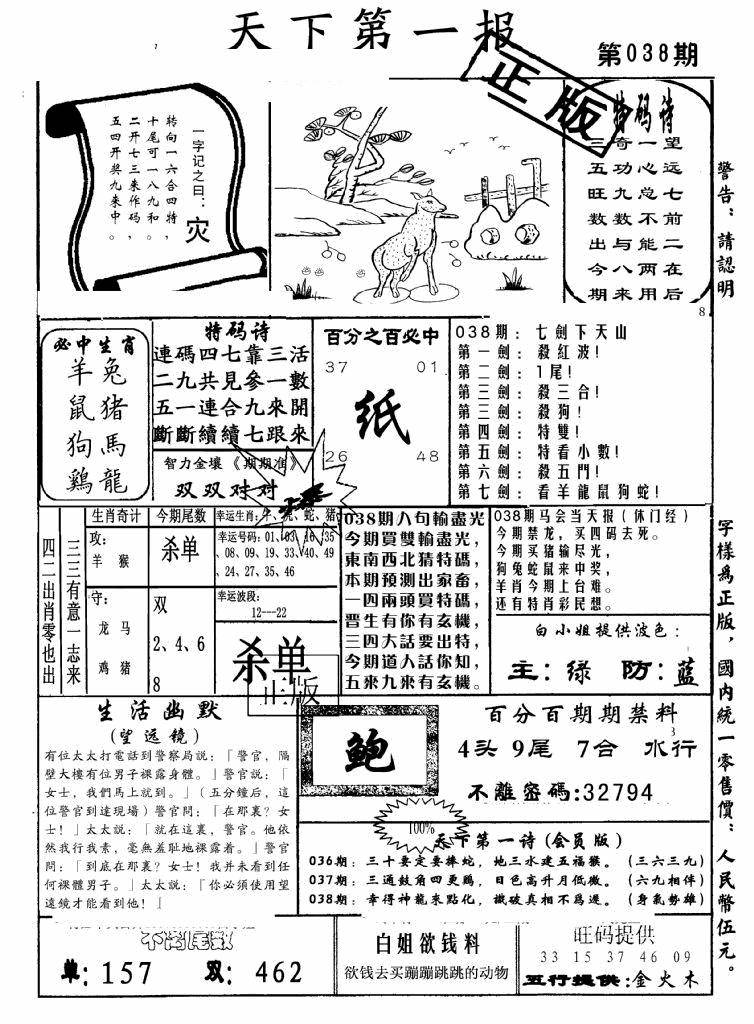 天下第一报
第038期
正版
一字记之曰：灾
转向一六合四特，
十尾可一八九和。
二开七三来作码，
五四开奖九来中。
特码诗
三奇一望
五功心远
旺九总七
数数不前
出与能二
今八两在
期来用后
警告：請認明
字樣爲正版，國内統一零售價：人民幣伍元。
8
必中生肖
羊兔
鼠猪
狗馬
鷄龍
特码诗
連碼四七靠三活
二九共見參一數
五一連合九來開
斷斷續續七跟來
智力金壤《期期准》
双双对对
百分之百必中
37 01
纸
26 48
038期：七劍下天山
第一劍：殺紅波！
第二劍：1尾！
第三劍：殺三合！
第三劍：殺狗！
第四劍：特雙！
第五劍：特看小數！
第六劍：殺五門！
第七劍：看羊龍鼠狗蛇！
三三有意一志来
四二出肖零也出
生肖奇计
攻：
羊 猴
守：
龙 马
鸡 猪
今期尾数
杀单
双
2、4、6
8
幸运生肖：牛、虎、蛇、猪
幸运号码：01、03、16、35
、08、09、19、33、40、49
、24、27、35、46
幸运波段：
12—22
杀单
正版
038期八句輸盡光
今期買雙輸盡光，
東南西北猜特碼，
本期預測出家畜，
一四兩頭買特碼，
晋生有你有玄機，
三四大話要出特，
今期道人話你知，
五來九來有玄機。
038期马会当天报（休门经）
今期禁龙，买四码去死。
今期买猪输尽光，
狗兔蛇鼠来中奖，
羊肖今期上台难。
还有特肖彩民想。
白小姐提供波色：
主：绿 防：蓝
生活幽默
(望远镜)
有位太太打電話到警察局説：「警官，隔
壁大樓有位男子裸露身體。」警官説：「
女士，我們馬上就到。」（五分鐘后，這
位警官到達現場）警官問：「在那裏？女
士！」太太説：「就在這裏，警官。他依
然我行我素，毫無羞耻地裸露着。」警官
問：「到底在那裏？女士！我并未看到任
何裸體男子。」太太説：「你必須使用望
遠鏡才能看到他！」
鲍
百分百期期禁料
3
4头 9尾 7合 水行
不離密碼:32794
100%
天下第一诗(会员版)
036期：三十要定要捧蛇，地三水建五福猴。（三六三九）
037期：三通鼓角四更鷄，日色高升月低微。（六九相伴）
038期：幸得神龍來點化，識破真相不爲遲。（身氣勢雄）
单：157 双：462
白姐欲钱料
欲钱去买蹦蹦跳跳的动物
旺码提供
33 15 37 46 09
五行提供：金火木